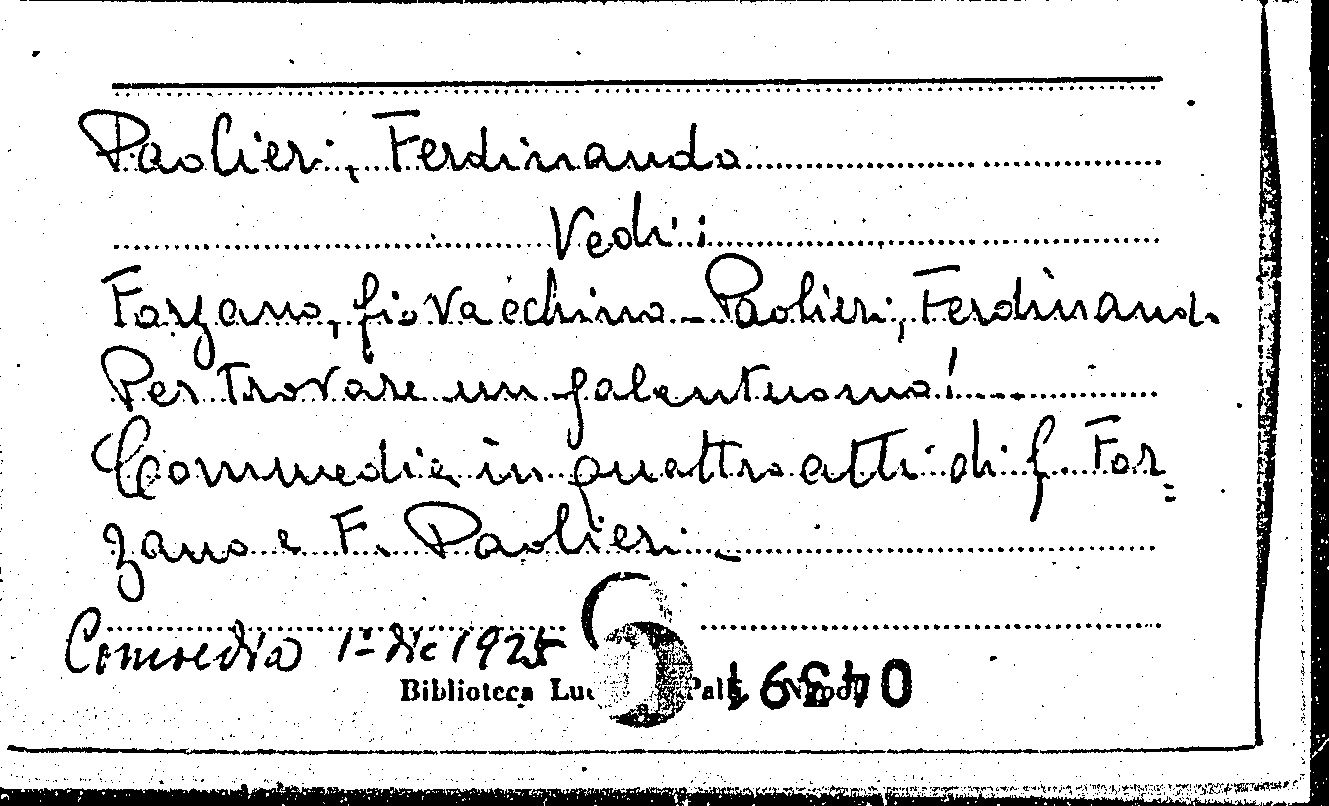 Paolieri, Ferdinando
Vedi:
Forzano, Giovacchino - Paolieri, Ferdinando
Per trovare un galantuomo!
Commedia in quattro atti di G. For=
zano e F. Paolieri. -
Comoedia 1° dic 1925
Biblioteca
04391